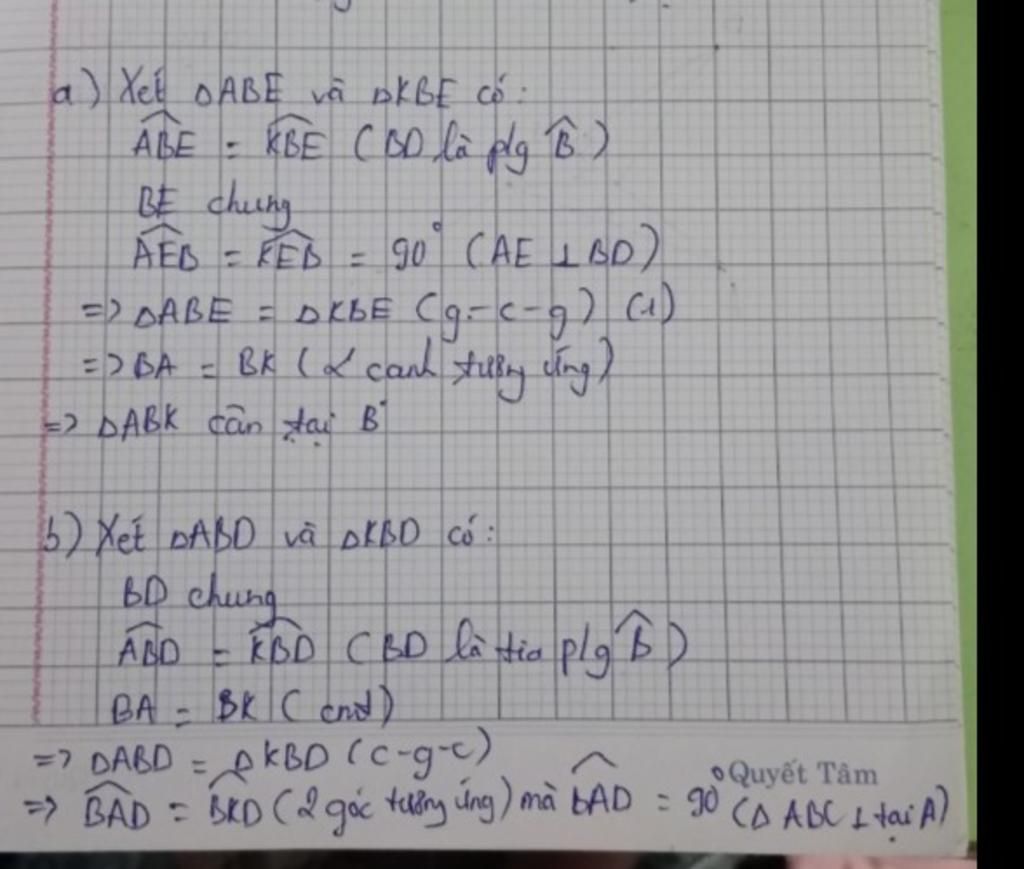 a) Xét ΔABE và ΔKBE có:
ABE = KBE (BD là plg B̂)
BE chung
AEB = KEB = 90° (AE ⊥ BD)
=> ΔABE = ΔKBE (g-c-g) (1)
=> BA = BK (2 canh tương ứng)
=> ΔABK cân tại B
b) Xét ΔABD và ΔKBD có:
BD chung
ABD = KBD (BD là tia plg B̂)
BA = BK (cmt)
=> ΔABD = ΔKBD (c-g-c)
Quyết Tâm
=> BAD = BKD (2 góc tương ứng) mà BAD = 90° (Δ ABC ⊥ tại A)